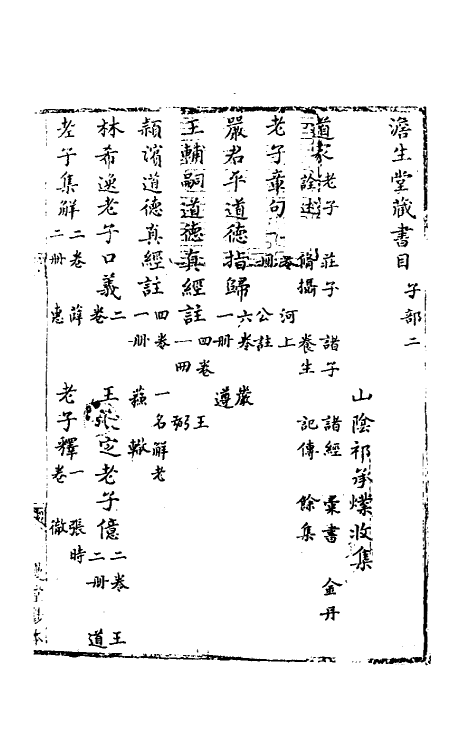 澹生堂藏書目 子部二
山陰祁承㸁收集
道家 老子 莊子 諸子 諸經 彙書 金丹
詮述 脩攝 養生 記傳 餘集
老子章句 二卷 河上公註
嚴君平道德指歸 六卷 一冊 嚴遵
王輔嗣道德真經註 四卷 一冊 王弼
潁濱道德真經註 四卷 一冊 一名解老 蘇轍
林希逸老子口義 二卷
王 定老子億 二卷 二冊 王道
老子集解 二卷 二冊 薛蕙
老子釋 一卷 張時徹